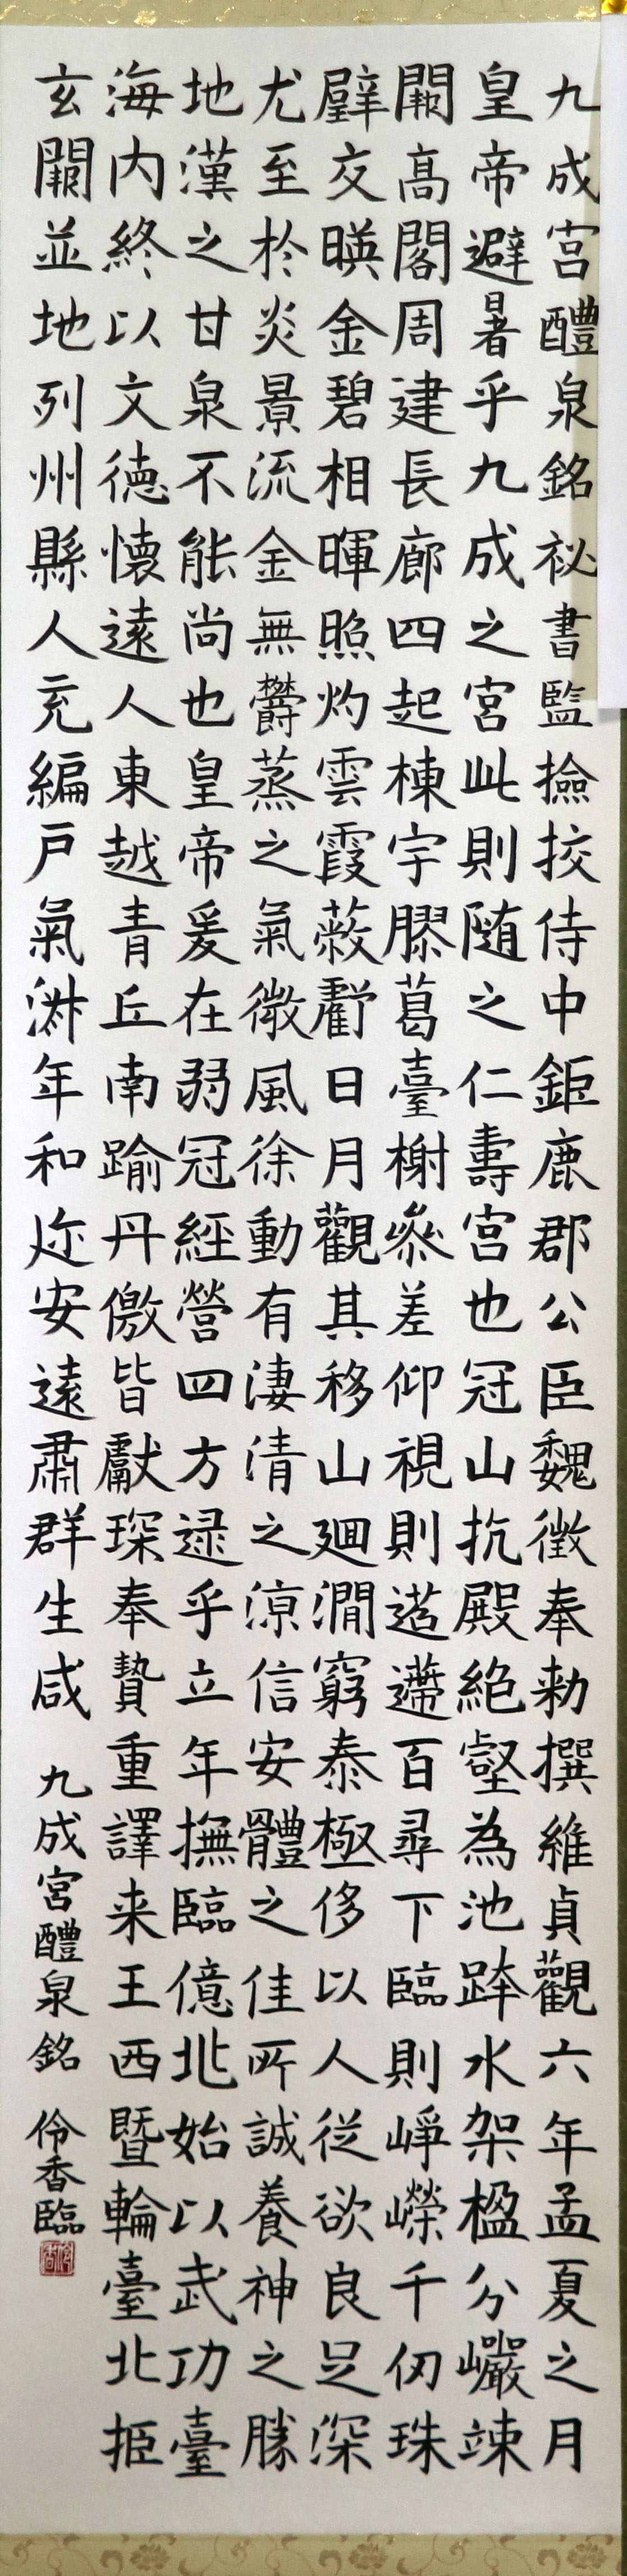 九成宮醴泉銘祕書監撿挍侍中鉅鹿郡公臣魏徵奉勅撰維貞觀六年孟夏之月
皇帝避暑乎九成之宮此則随之仁壽宮也冠山抗殿絶壑為池跨水架楹分巖竦
闕高閣周建長廊四起棟宇膠葛臺榭參差仰視則迢遰百尋下臨則崢嶸千仞珠
璧交暎金碧相暉照灼雲霞蔽虧日月觀其移山廻澗窮泰極侈以人從欲良足深
尤至於炎景流金無欝蒸之氣微風徐動有淒清之涼信安體之佳所誠養神之勝
地漢之甘泉不能尚也皇帝爰在弱冠經營四方逮乎立年撫臨億兆始以武功臺
海内終以文德懷遠人東越青丘南踰丹儌皆獻琛奉贄重譯来王西曁輪臺北拒
玄闕並地列州縣人充編戸氣淋年和迩安遠肅群生咸
九成宮醴泉銘 伶香臨